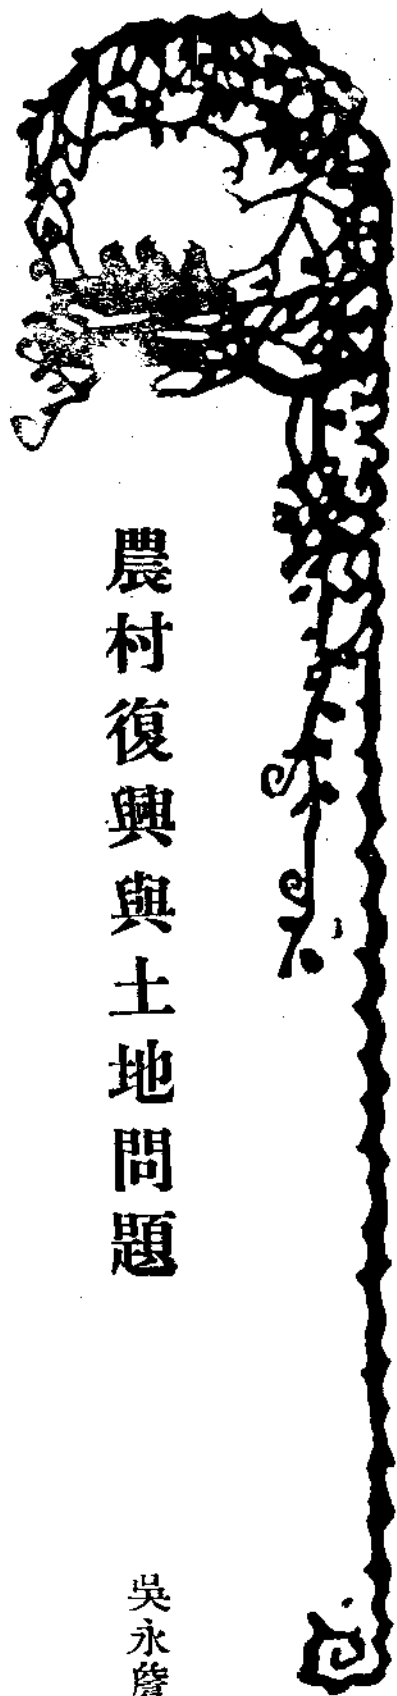 農村復興與土地問題
吳永詹